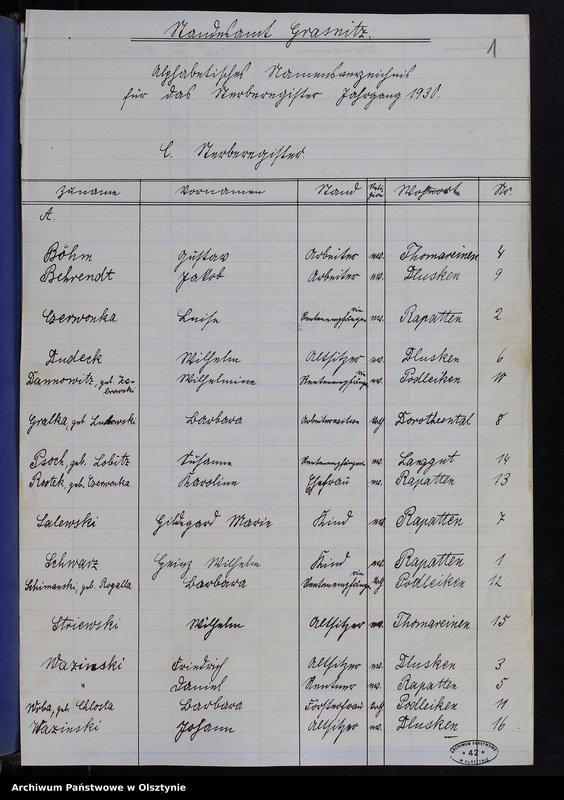 Standesamt Grasnitz.
1
Alphabetisches Namensverzeichnis
für das Sterberegister Jahrgang 1930.
C. Sterberegister.
Zuname Vornamen Stand Religion Wohnort Nr.
A.
Böhm Gustav Arbeiter ev. Thomareinen 4
Behrendt Jakob Arbeiter ev. Dlusken 9
Czerwonka Luise Rentenempfängerin ev. Rapatten 2
Dudeck Wilhelm Altsitzer ev. Dlusken 6
Dannowitz, geb. Wilhelmine Rentenempfängerin ev. Podleiken 10
Gralka, geb. Barbara kath Dorotheental 8
Psoch, geb. Lobitz Susanne Rentenempfängerin ev. Langgut 14
Rostek, geb. Czerwonka Karoline Ehefrau ev. Rapatten 13
Salewski Hildegard Marie Kind ev. Rapatten 7
Schwarz Heinz Wilhelm Kind ev. Rapatten 1
Schimanski, geb. Rogalla Barbara Rentenempfängerin kath Podleiken 12
Striewski Wilhelm Altsitzer ev. Thomareinen 15
Wazinski Friedrich Altsitzer ev. Dlusken 3
" Daniel Rentner ev. Rapatten 5
Wrba, geb. Chlosta Barbara Försterfrau kath Podleiken 11
Wazinski Johann Altsitzer ev. Dlusken 16.
ARCHIWUM PAŃSTWOWE
* 42 *
W OLSZTYNIE
Archiwum Państwowe w Olsztynie